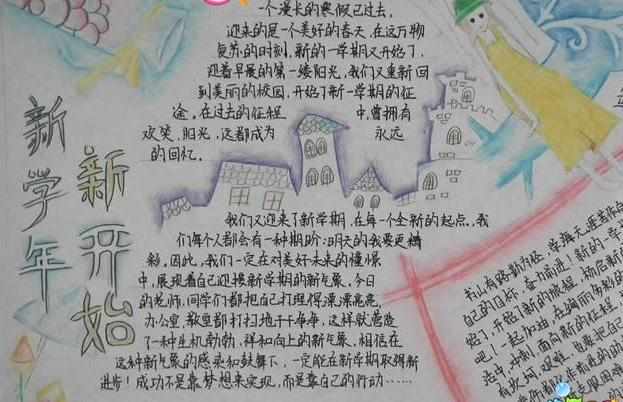 新学年
新开始
一个漫长的寒假已过去,
迎来的是一个美好的春天,在这万物
复苏的时刻,新的一学期又开始了.
迎着早晨的第一缕阳光,我们又重新回
到美丽的校园,开始了新一学期的征
途,在过去的征程中,曾拥有
欢笑.阳光,这都成为永远
的回忆.
我们又迎来了新学期,在每一个全新的起点,我
们每个人都会有一种期盼:明天的我要更精
彩,因此,我们一定在对美好未来的憧憬
中,展现着自己迎接新学期的新气象,今日
的老师,同学们都把自己打理得漂漂亮亮
办公室,教室都打扫地干干净净,这样就营造
了一种生机勃勃,祥和向上的新气象,相信在
这种新气象的感染和鼓舞下,一定能在新学期取得新
进步!成功不是靠梦想来实现,而是靠自己的行动……
书山有路勤为径,学海无涯苦作
自己的目标,奋力前进!新的一学
始了,开始了新的旅程,扬起新的
吧!一起加油,在绚丽多彩的
活中,冲刺,面向新的征程,
有坎坷,艰难,